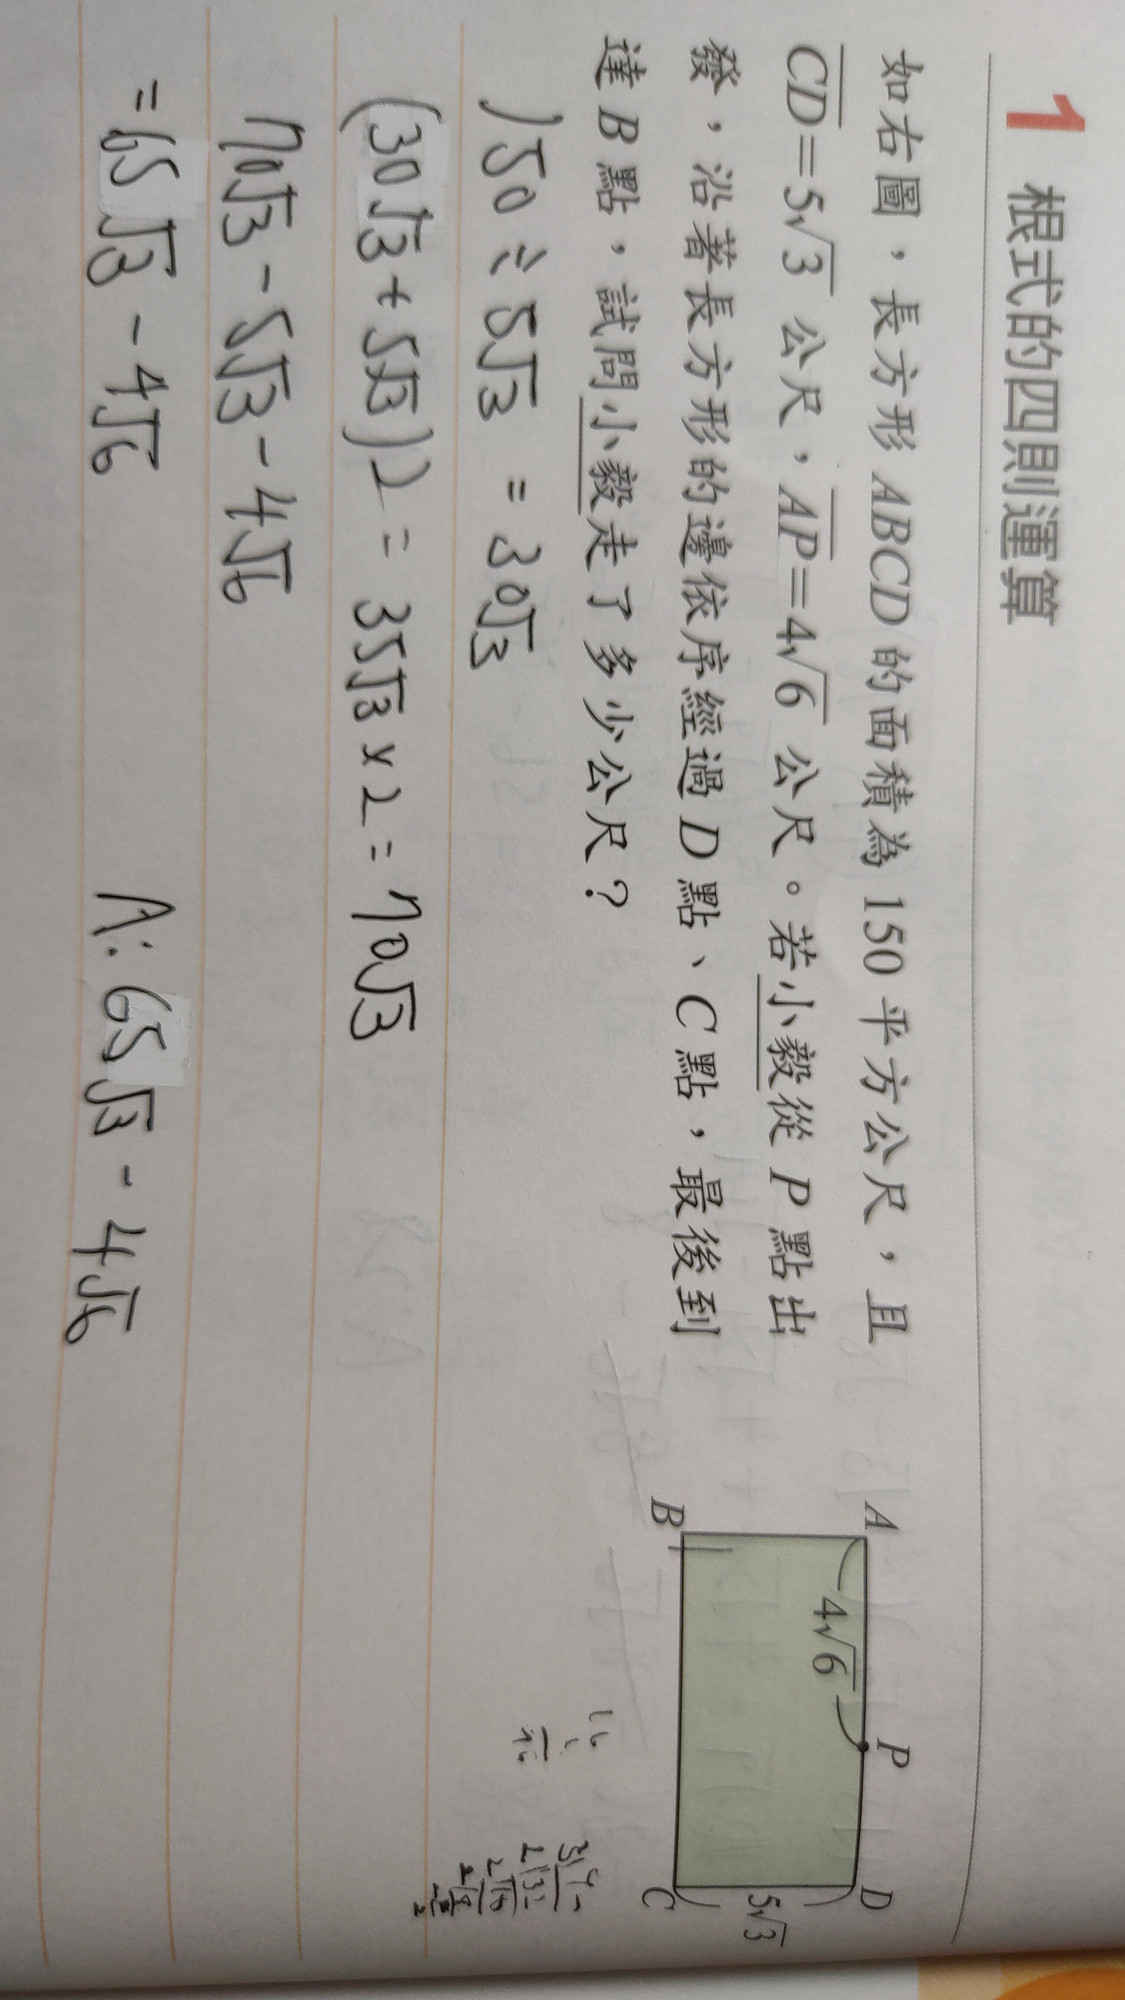 1 根式的四則運算
如右圖，長方形 ABCD 的面積為 150 平方公尺，且
CD=5√3 公尺，AP=4√6 公尺。若小毅從 P 點出
發，沿著長方形的邊依序經過 D 點、C 點，最後到
達 B 點，試問小毅走了多少公尺？
A
P
D
4√6
5√3
B
C
150÷5√3 = 30√3
(30√3+5√3)2 = 35√3×2 = 70√3
70√3-5√3-4√6
=65√3-4√6
A: 65√3-4√6